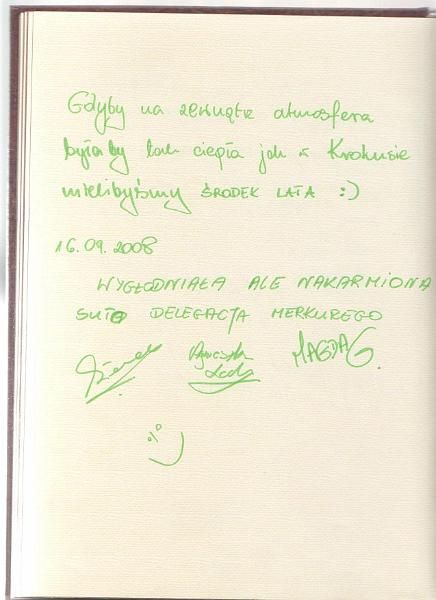 Gdyby na zewnątrz atmosfera
byłaby tak ciepła jak w Krokusie
mielibyśmy ŚRODEK LATA :)
16.09.2008
WYGŁODNIAŁA ALE NAKARMIONA
SUTO DELEGACJA MERKUREGO
MAGDA G.